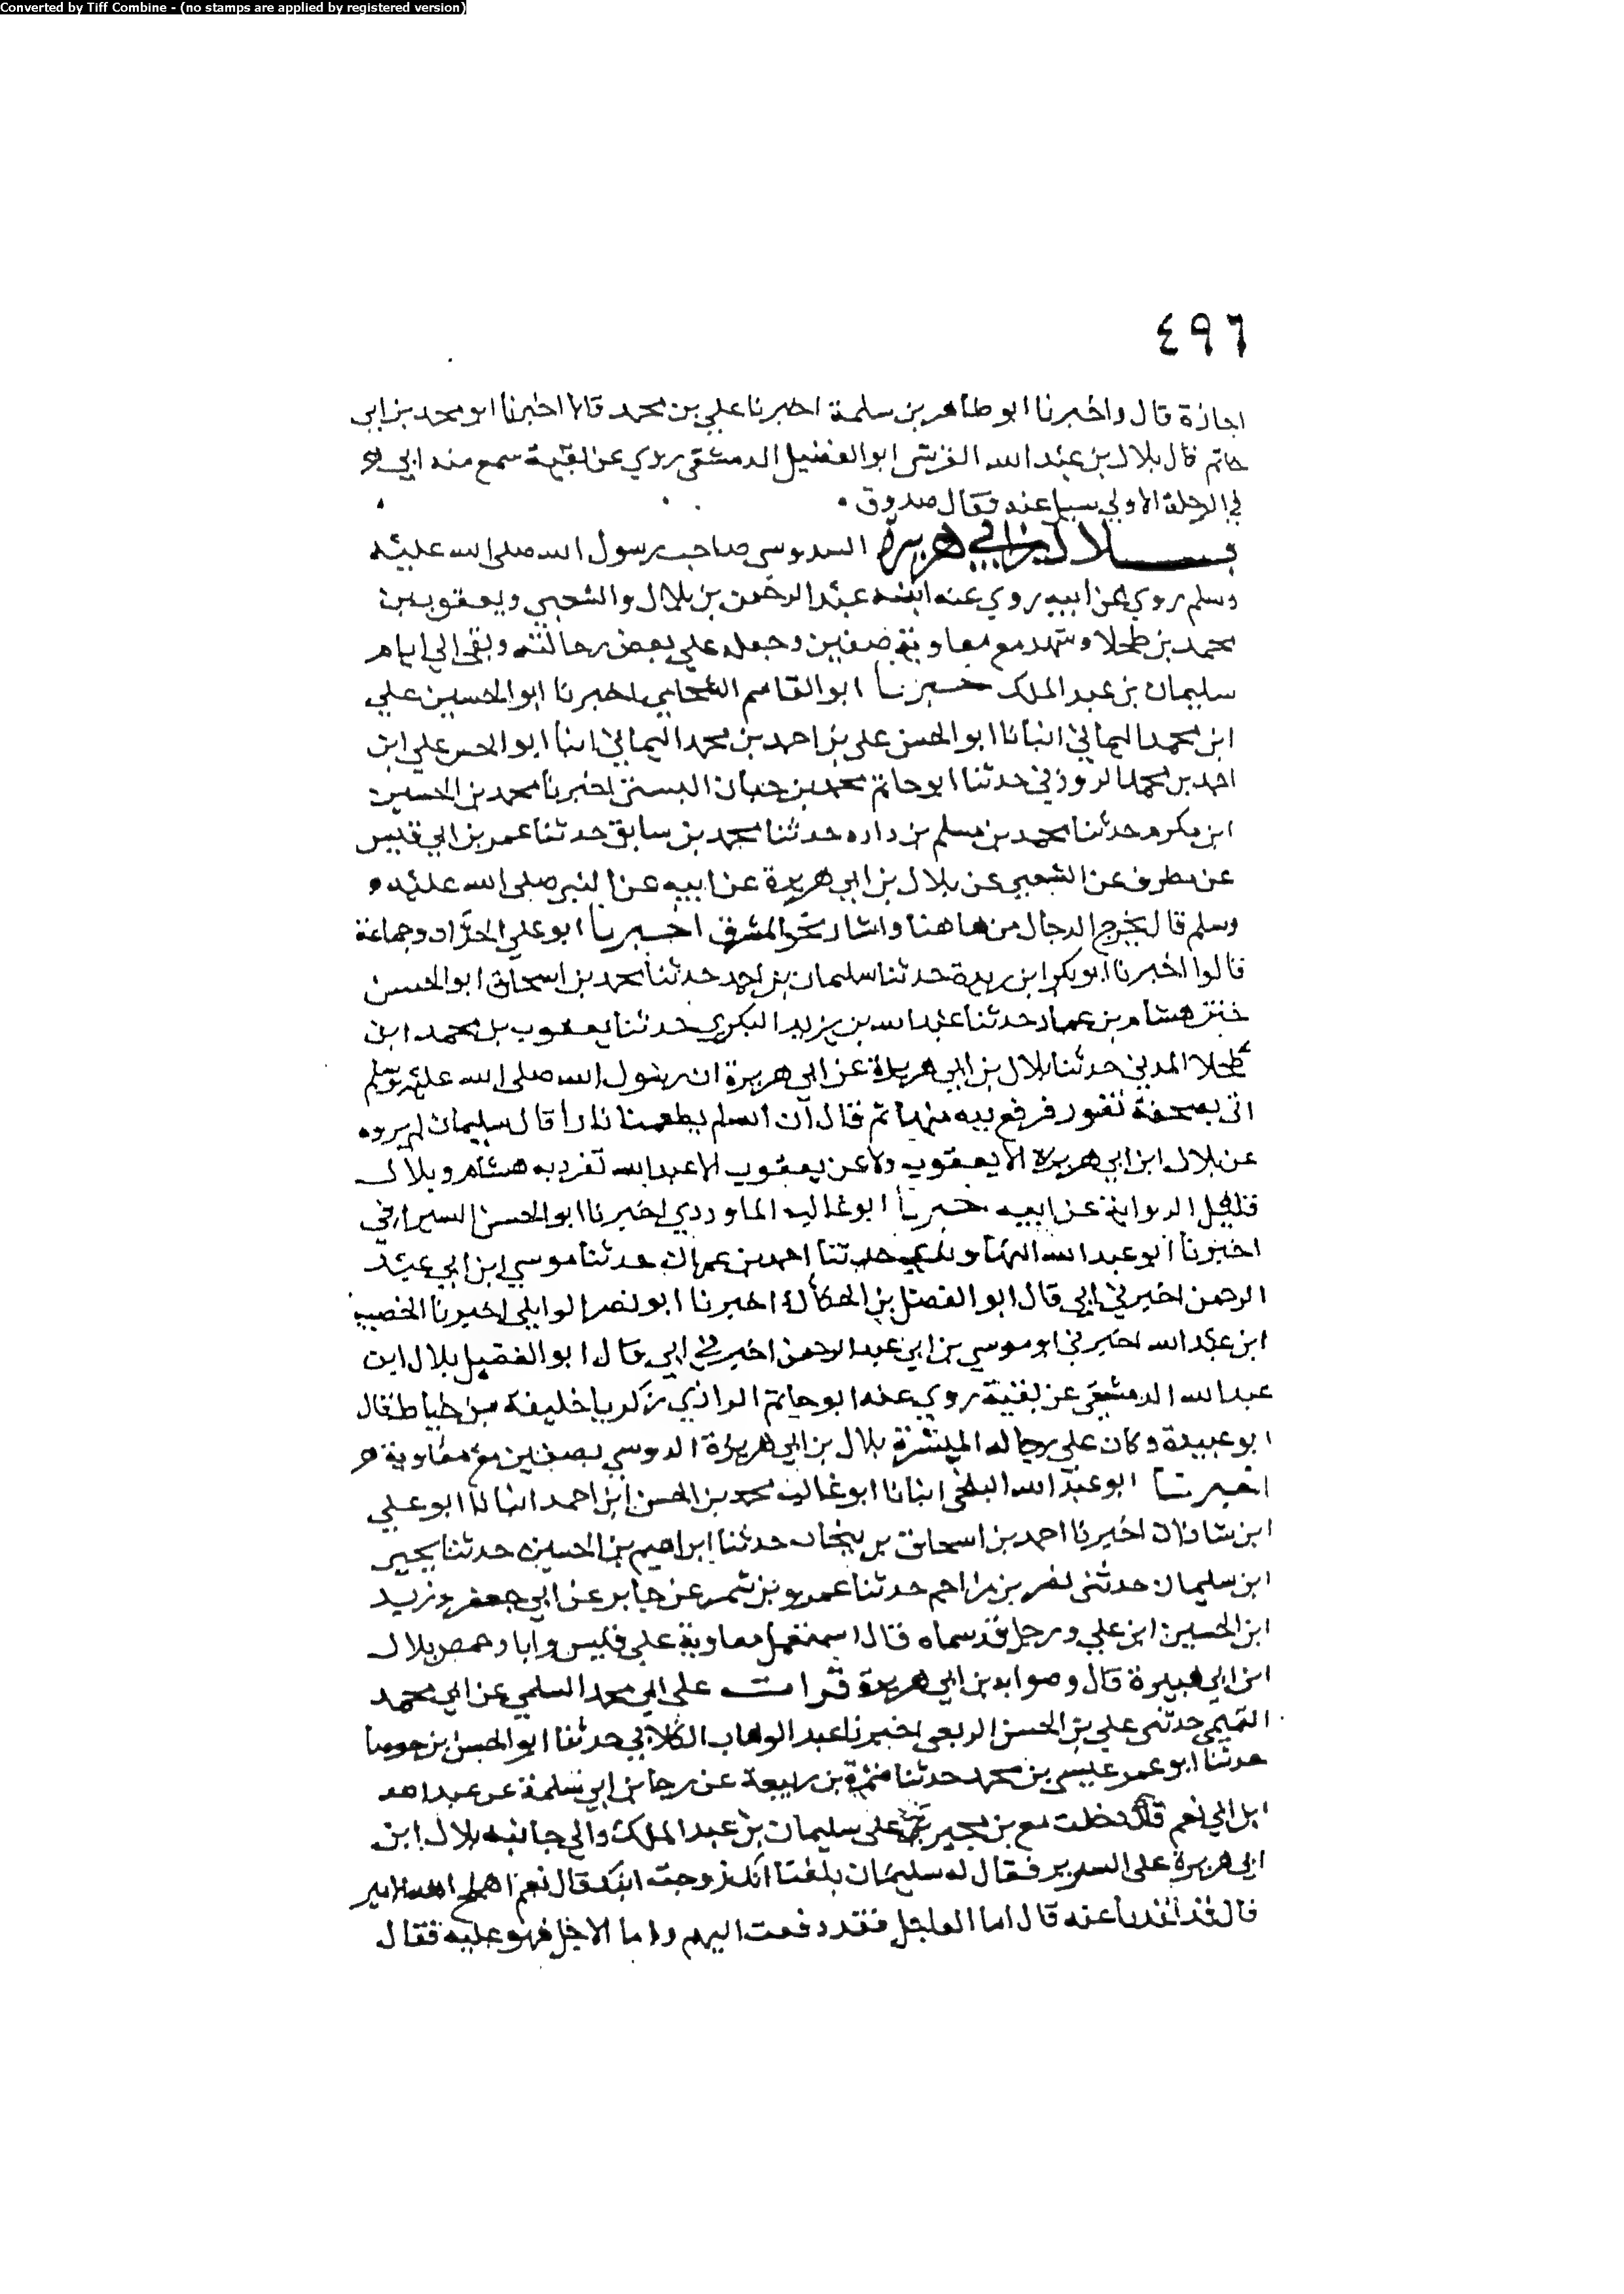 Converted by Tiff Combine - (no stamps are applied by registered version)
٤٩٦
اجازة قال واخبرنا ابو طاهر بن سلمة اخبرنا علي بن محمد قالا اخبرنا ابو محمد بن ابي
حاتم قال بلال بن عبد الله القرشي ابو الفضيل الدمشقي روي عن بقية سمع منه ابي
في الرحلة الاولي سيل عنه فقال صدوق
بلال بن ابي هريرة السدوسي صاحب رسول الله صلى الله عليه
وسلم روي عن ابيه روي عنه ابنه عبد الرحمن بن بلال والشعبي ويعقوب بن
محمد بن طحلا وشهد مع معاوية صفين وجعله علي بعض رجالته وبقي الي ايام
سليمان بن عبد الملك خبرنا ابو القاسم الشحامي اخبرنا ابو الحسين علي
ابن محمد اليماني انبانا ابو الحسن علي بن احمد بن محمد اليماني انبا ابو الحسن علي ابن
احمد بن محمد الزوزني حدثنا ابو حاتم محمد بن حبان البستي اخبرنا محمد بن الحسين
ابن مكرم حدثنا محمد بن مسلم بن داره حدثنا محمد بن سابق حدثنا عمر بن ابي قيس
عن مطرف عن الشعبي عن بلال بن ابي هريرة عن ابيه عن النبي صلى الله عليه
وسلم قال يخرج الدجال من هاهنا واشار نحو المشرق اخبرنا ابو علي الحداد وجماعة
قالوا اخبرنا ابو بكر ابن ريدة حدثنا سليمان بن احمد حدثنا محمد بن اسحاق ابو الحسن
هشام بن عمار حدثنا عبد الله بن يزيد البكري حدثنا يعقوب بن محمد ابن
طحلا المدني حدثنا بلال بن ابي هريرة عن ابي هريرة ان رسول الله صلى الله عليه وسلم
اتي بصحفة تفور فرفع يده منها ثم قال ان الله لم يطعمنا نارا قال سليمان لم يروه
عن بلال ابن ابي هريرة الا يعقوب ولا عن يعقوب الا عبد الله تفرد به هشام وبلال
قليل الرواية عن ابيه خبرنا ابو غالب الماوردي اخبرنا ابو الحسن السيرافي
اخبرنا ابو عبد الله النهاوندي حدثنا احمد بن عمران حدثنا موسي ابن ابي عبد
الرحمن اخبرني ابي قال ابو الفضل بن الحكاك اخبرنا ابو نصر الوايلي اخبرنا الخصيب
ابن عبد الله اخبرني ابو موسي بن ابي عبد الرحمن اخبرني ابي قال ابو الفضيل بلال ابن
عبد الله الدمشقي عن بقية روي عنه ابو حاتم الرازي زكريا خليفة بن خياط قال
ابو عبيدة وكان علي رجاله الميسرة بلال بن ابي هريرة الدوسي بصفين مع معاوية
اخبرنا ابو عبد الله البلخي انبانا ابو غالب محمد بن الحسن ابن احمد انبانا ابو علي
ابن شاذان اخبرنا احمد بن اسحاق بن بيخاب حدثنا ابراهيم بن الحسين حدثنا يحيي
ابن سليمان حدثني نصر بن مزاحم حدثنا عمرو بن شمر عن جابر عن ابي جعفر وزيد
ابن الحسين ابن علي ورجل قد سماه قال استعمل معاوية علي قيس واياد حمص بلال
ابن ابي هبيرة قال وصوابه بن ابي هريرة قرات علي ابي محمد السلمي عن ابي محمد
التميمي حدثني علي بن الحسن الربعي اخبرنا عبد الوهاب الكلابي حدثنا ابو الحسن بن جوصا
حدثنا ابو عمر عيسى بن محمد حدثنا ضمرة بن ربيعة عن رجا بن ابي سلمة عن عبد الله
ابن ابي نعم قال دخلت مع بن محيريز علي سليمان بن عبد الملك والي جانبه بلال ابن
ابي هريرة على السرير فقال له سليمان بلغنا انك زوجت ابنك قال نعم اصلح الله الامير
قال قد نقدنا عنه قال اما العاجل فقد دفعت اليهم واما الاجل فهو عليه فقال